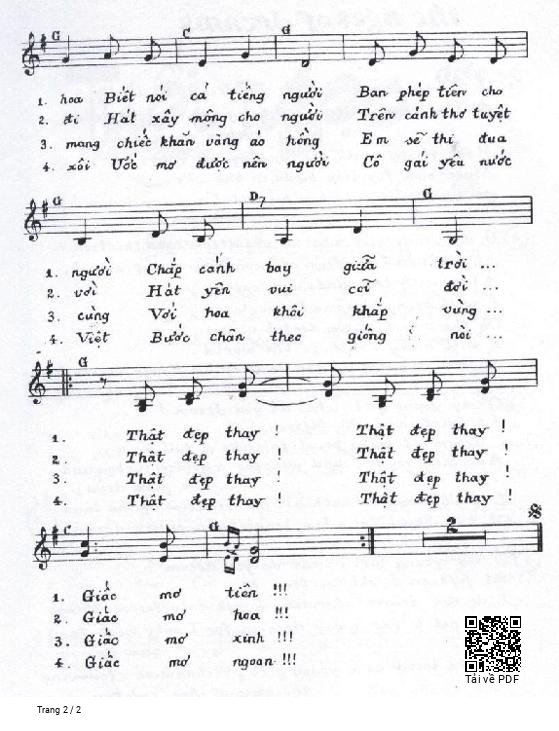 G C G
1. hoa Biết nói cả tiếng người Ban phép tiên cho
2. đi Hát xây mộng cho người Trên cảnh thơ tuyệt
3. mang chiếc khăn vàng áo hồng Em sẽ thi đua
4. xôi Ước mơ được nên người Cô gái yêu nước
G D7 G
1. người Chắp cánh bay giữa trời ...
2. vời Hát yên vui cõi đời ...
3. cùng Với hoa khôi khắp vùng ...
4. Việt Bước chân theo giống nòi
G
1. Thật đẹp thay ! Thật đẹp thay !
2. Thật đẹp thay ! Thật đẹp thay !
3. Thật đẹp thay ! Thật đẹp thay !
4. Thật đẹp thay ! Thật đẹp thay !
C G 2
1. Giấc mơ tiên !!!
2. Giấc mơ hoa !!!
3. Giấc mơ xinh !!!
4. Giấc mơ ngoan !!!
Tải về PDF
Trang 2 / 2